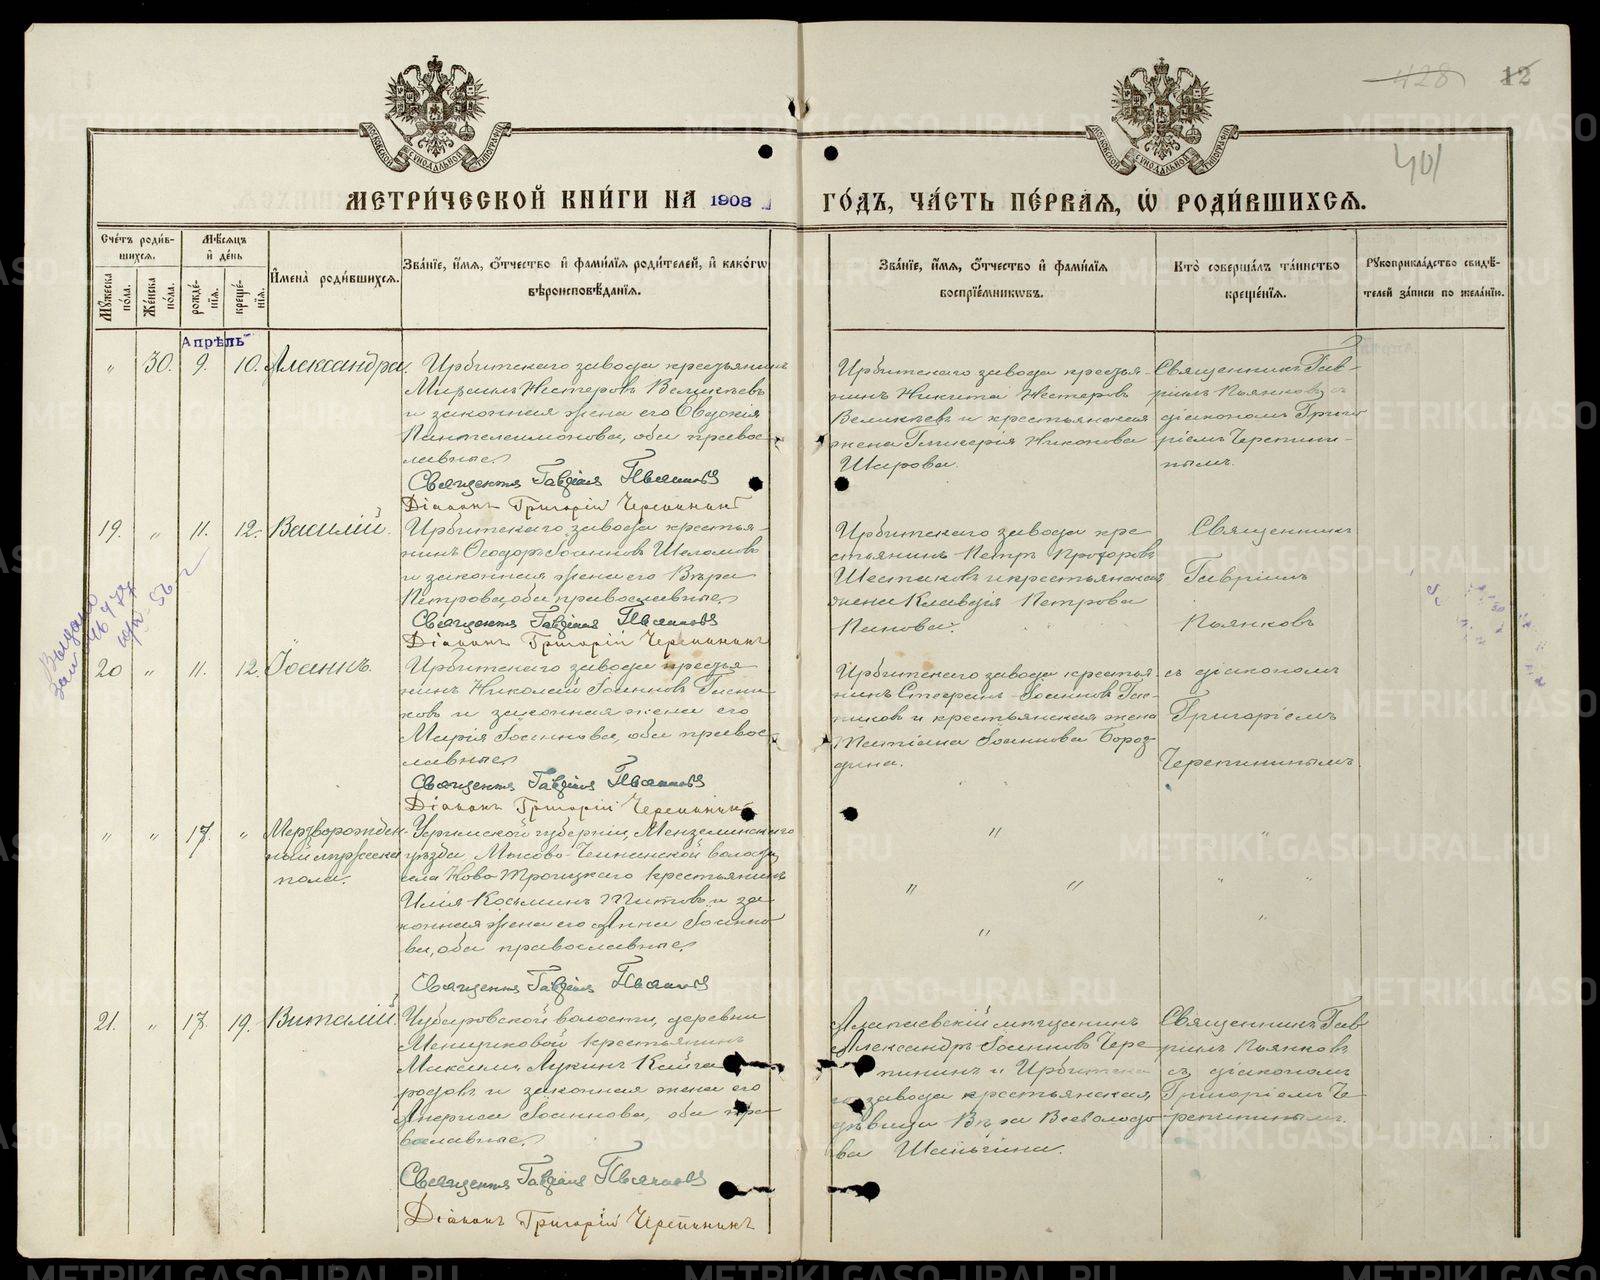 428 12
401
МОСКОВСКОЙ СѴНОДАЛЬНОЙ ТИПОГРАФІИ
МОСКОВСКОЙ СѴНОДАЛЬНОЙ ТИПОГРАФІИ
МЕТРИ́ЧЕСКОЙ КНИ́ГИ НА 1908
ГО́ДЪ, ЧА́СТЬ ПЕ́РВАѦ, Ѡ РОДИ́ВШИХСѦ.
Сче́тъ роди́вшихсѧ.
Мꙋ́жеска по́ла.
Же́нска по́ла.
Мѣ́сѧцъ и҆ де́нь
рожде́нїѧ.
креще́нїѧ.
И҆мена̀ роди́вшихсѧ.
Зва́нїе, и҆́мѧ, ѻ҆́тчество и҆ фами́лїѧ роди́телей, и҆ како́гѡ
вѣроисповѣ́данїѧ.
Зва́нїе, и҆́мѧ, ѻ҆́тчество и҆ фами́лїѧ
воспрїе́мникѡвъ.
Кто̀ соверша́лъ та́инство
креще́нїѧ.
Рꙋкоприкла́дство свидѣ́-
телей за́писи по жела́нїю.
Апрѣль
" 30. 9. 10. Александра.
Ирбитскаго завода крестьянинъ
Михаилъ Нестеровъ Великѣевъ
и законная жена его Евдокія
Пантелеимонова, оба правос-
лавные.
Священникъ Гавріилъ Пьянковъ
Діаконъ Григорій Черепанинъ
Ирбитскаго завода крестья-
нинъ Никита Нестеровъ
Великѣевъ и крестьянская
жена Гликерія Никонова
Шарова.
Священникъ Гав-
ріилъ Пьянковъ съ
діакономъ Григо-
ріемъ Черепани-
нымъ.
19. " 11. 12. Василій.
Ирбитскаго завода крестья-
нинъ Ѳеодоръ Іоанновъ Шеломовъ
и законная жена его Вѣра
Петрова, оба православные.
Священникъ Гавріилъ Пьянковъ
Діаконъ Григорій Черепанинъ
Ирбитскаго завода кре-
стьянинъ Петръ Прохоровъ
Шестаковъ и крестьянская
жена Клавдія Петрова
Панова.
Священникъ
Гавріилъ
Пьянковъ
20 " 11. 12. Іоаннъ.
Ирбитскаго завода крестья
нинъ Николай Іоанновъ
и законная жена его
Марія Іоаннова, оба правос-
лавные.
Священникъ Гавріилъ Пьянковъ
Діаконъ Григорій Черепанинъ
Ирбитскаго завода крестья-
нинъ Стефанъ Іоанновъ
и крестьянская жена
Татіана Іоаннова Бороз-
дина.
съ діакономъ
Григоріемъ
Черепанинымъ.
" " 17. " Мертворожден-
ный мужеска
пола.
Уфимской губерніи, Мензелинскаго
уѣзда волости,
села Ново-Троицкаго крестьянинъ
Илія Косьминъ Титовъ и за-
конная жена его Анна Іоанно-
ва, оба православные.
Священникъ Гавріилъ Пьянковъ
21. " 17. 19. Виталій.
Чубаровской волости, деревни
Меньшиковой крестьянинъ
Максимъ Лукинъ Кайго-
родовъ и законная жена его
Іоаннова, оба пра-
вославные.
Священникъ Гавріилъ Пьянковъ
Діаконъ Григорій Черепанинъ
Алапаевскій мѣщанинъ
Александръ Іоанновъ Чере-
панинъ и Ирбитска-
го завода крестьянская
дѣвица Вѣра Всеволодо-
ва
Священникъ Гав-
ріилъ Пьянковъ
съ діакономъ
Григоріемъ Че-
репанинымъ.